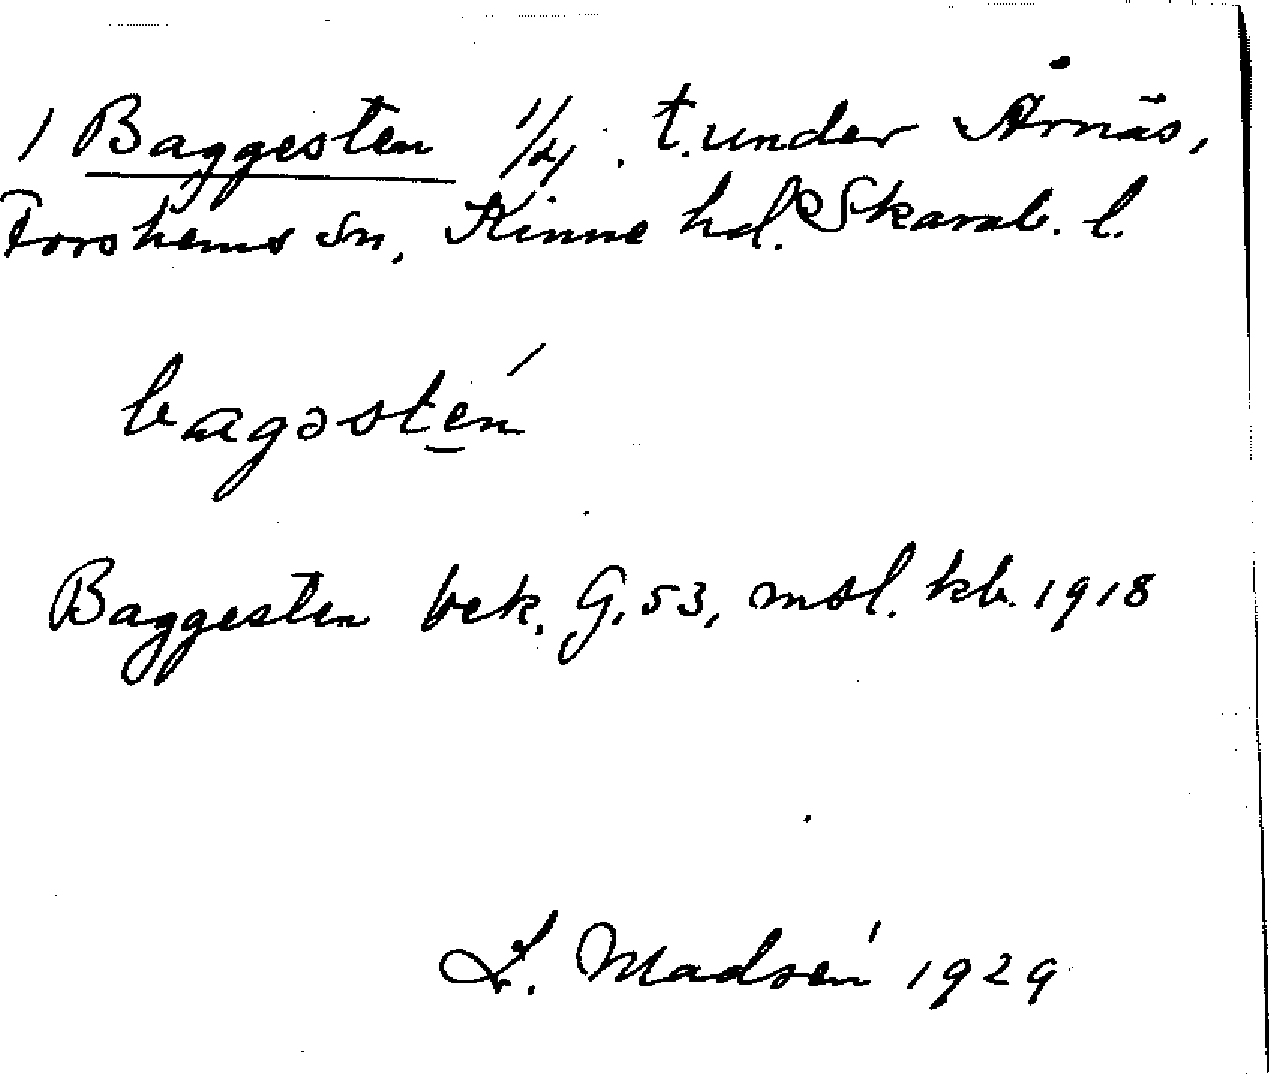 1 Baggesten 1/4. t. under Årnäs,
Forshems sn, Kinne hd. Skarab. l.
bagəste̲ń
Baggesten bek. G. 53, msl. kb. 1918
L. Madsén 1929